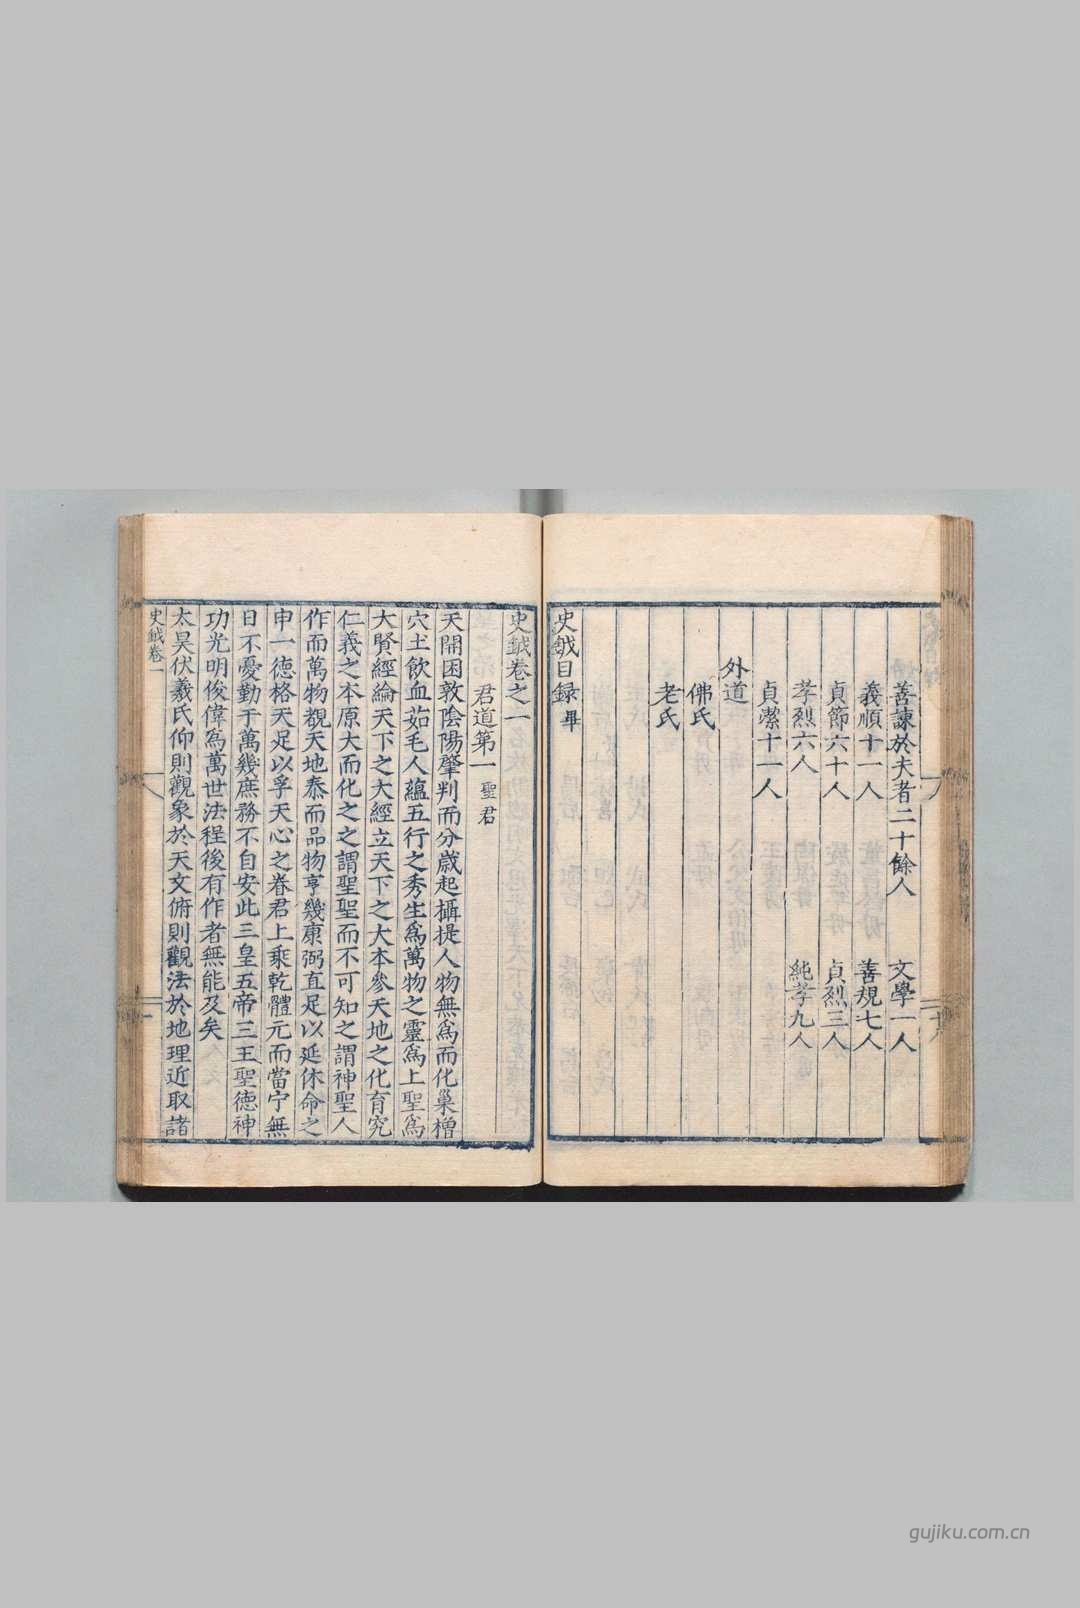 善諫於夫者二十餘人 文學一人
義順十一人 善規七人
貞節六十人 貞烈三人
孝烈六人 純孝九人
貞潔十一人
外道
佛氏
老氏
史鉞目録畢
史鉞卷之一
君道第一 聖君
天開困敦陰陽肇判而分歲起攝提人物無爲而化巢橧
穴土飲血茹毛人蘊五行之秀生爲萬物之靈爲上聖爲
大賢經綸天下之大經立天下之大本參天地之化育究
仁義之本原大而化之之謂聖聖而不可知之謂神聖人
作而萬物覩天地泰而品物亨幾康弼直足以延休命之
申一德格天足以孚天心之眷君上乘乾體元而當宁無
日不憂勤于萬幾庶務不自安此三皇五帝三王聖德神
功光明俊偉為萬世法程後有作者無能及矣
太昊伏羲氏仰則觀象於天文俯則觀法於地理近取諸
史鉞卷一
gujiku.com.cn